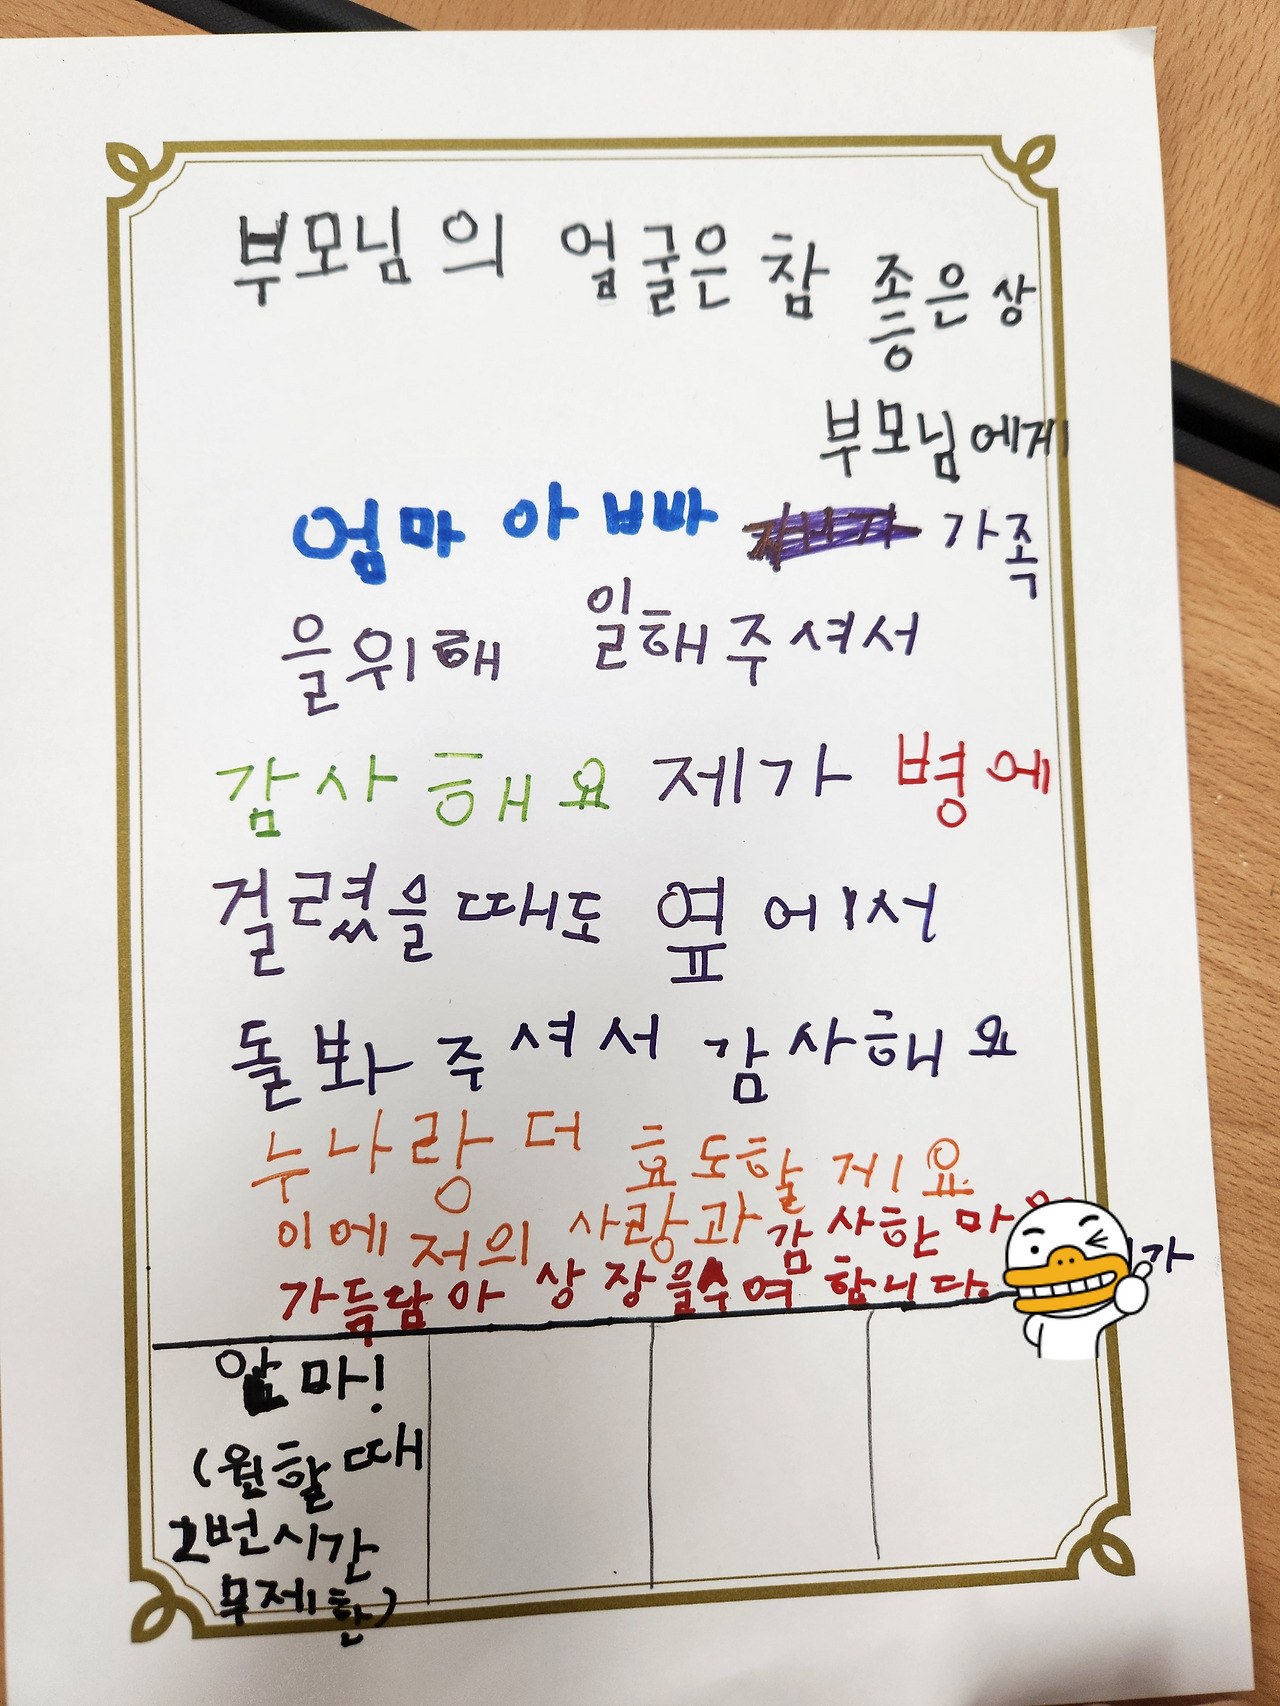 부모님의 얼굴은 참 좋은 상
부모님에게
엄마 아빠 가족
을위해 일해주셔서
감사해요 제가 병에
걸렸을때도 옆에서
돌봐주셔서 감사해요
누나랑 더 효도할게요
이에 저의 사랑과 감사한 마
가득담아 상장을수여 합니다.
가
알마!
(원할때
2번시간
무제한)